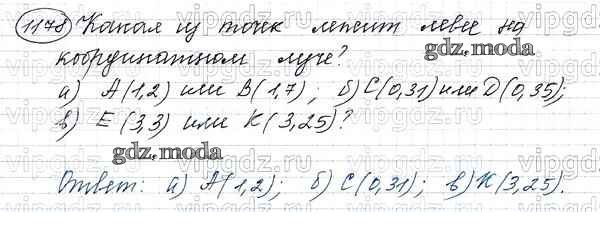 1178 Какая из точек лежит левее на
координатном луче?
gdz.moda
а) A(1,2) или B(1,7); б) C(0,31) или D(0,35);
в) E(3,3) или K(3,25)?
gdz.moda
Ответ: а) A(1,2); б) C(0,31); в) K(3,25).